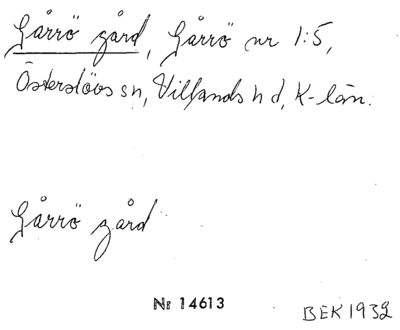 Gårrö gård, Gårrö nr 1:5,
Österslövs sn, Villands hd, K-län.
Gårrö gård
Nr 14613
BEK 1932